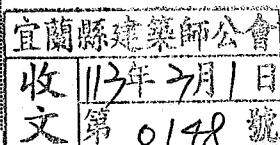 宜蘭縣建築師公會
收文
113年3月1日
第 0148 號